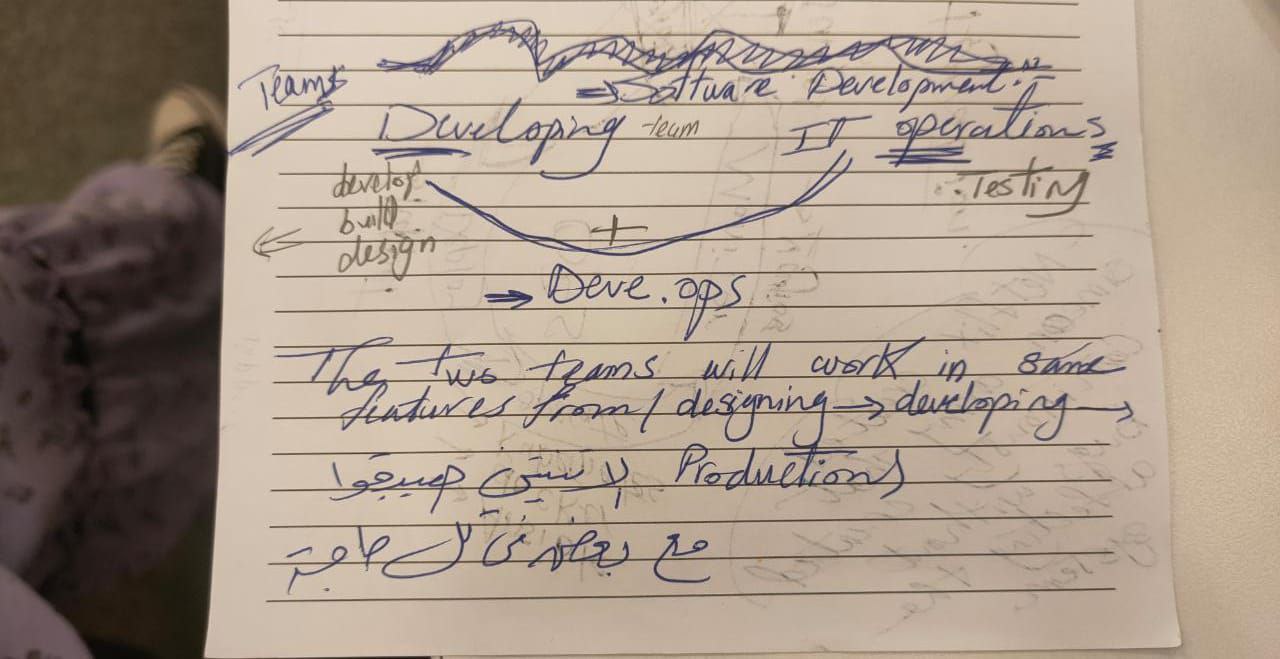 Teams
⇒ Software Development.
Developing team IT operations
develop
build
design
Testing
+
→ Deve.ops
The two teams will work in same
features from / designing → developing →
Productions الاتنين هيبقوا
مع بعض في كل حاجة